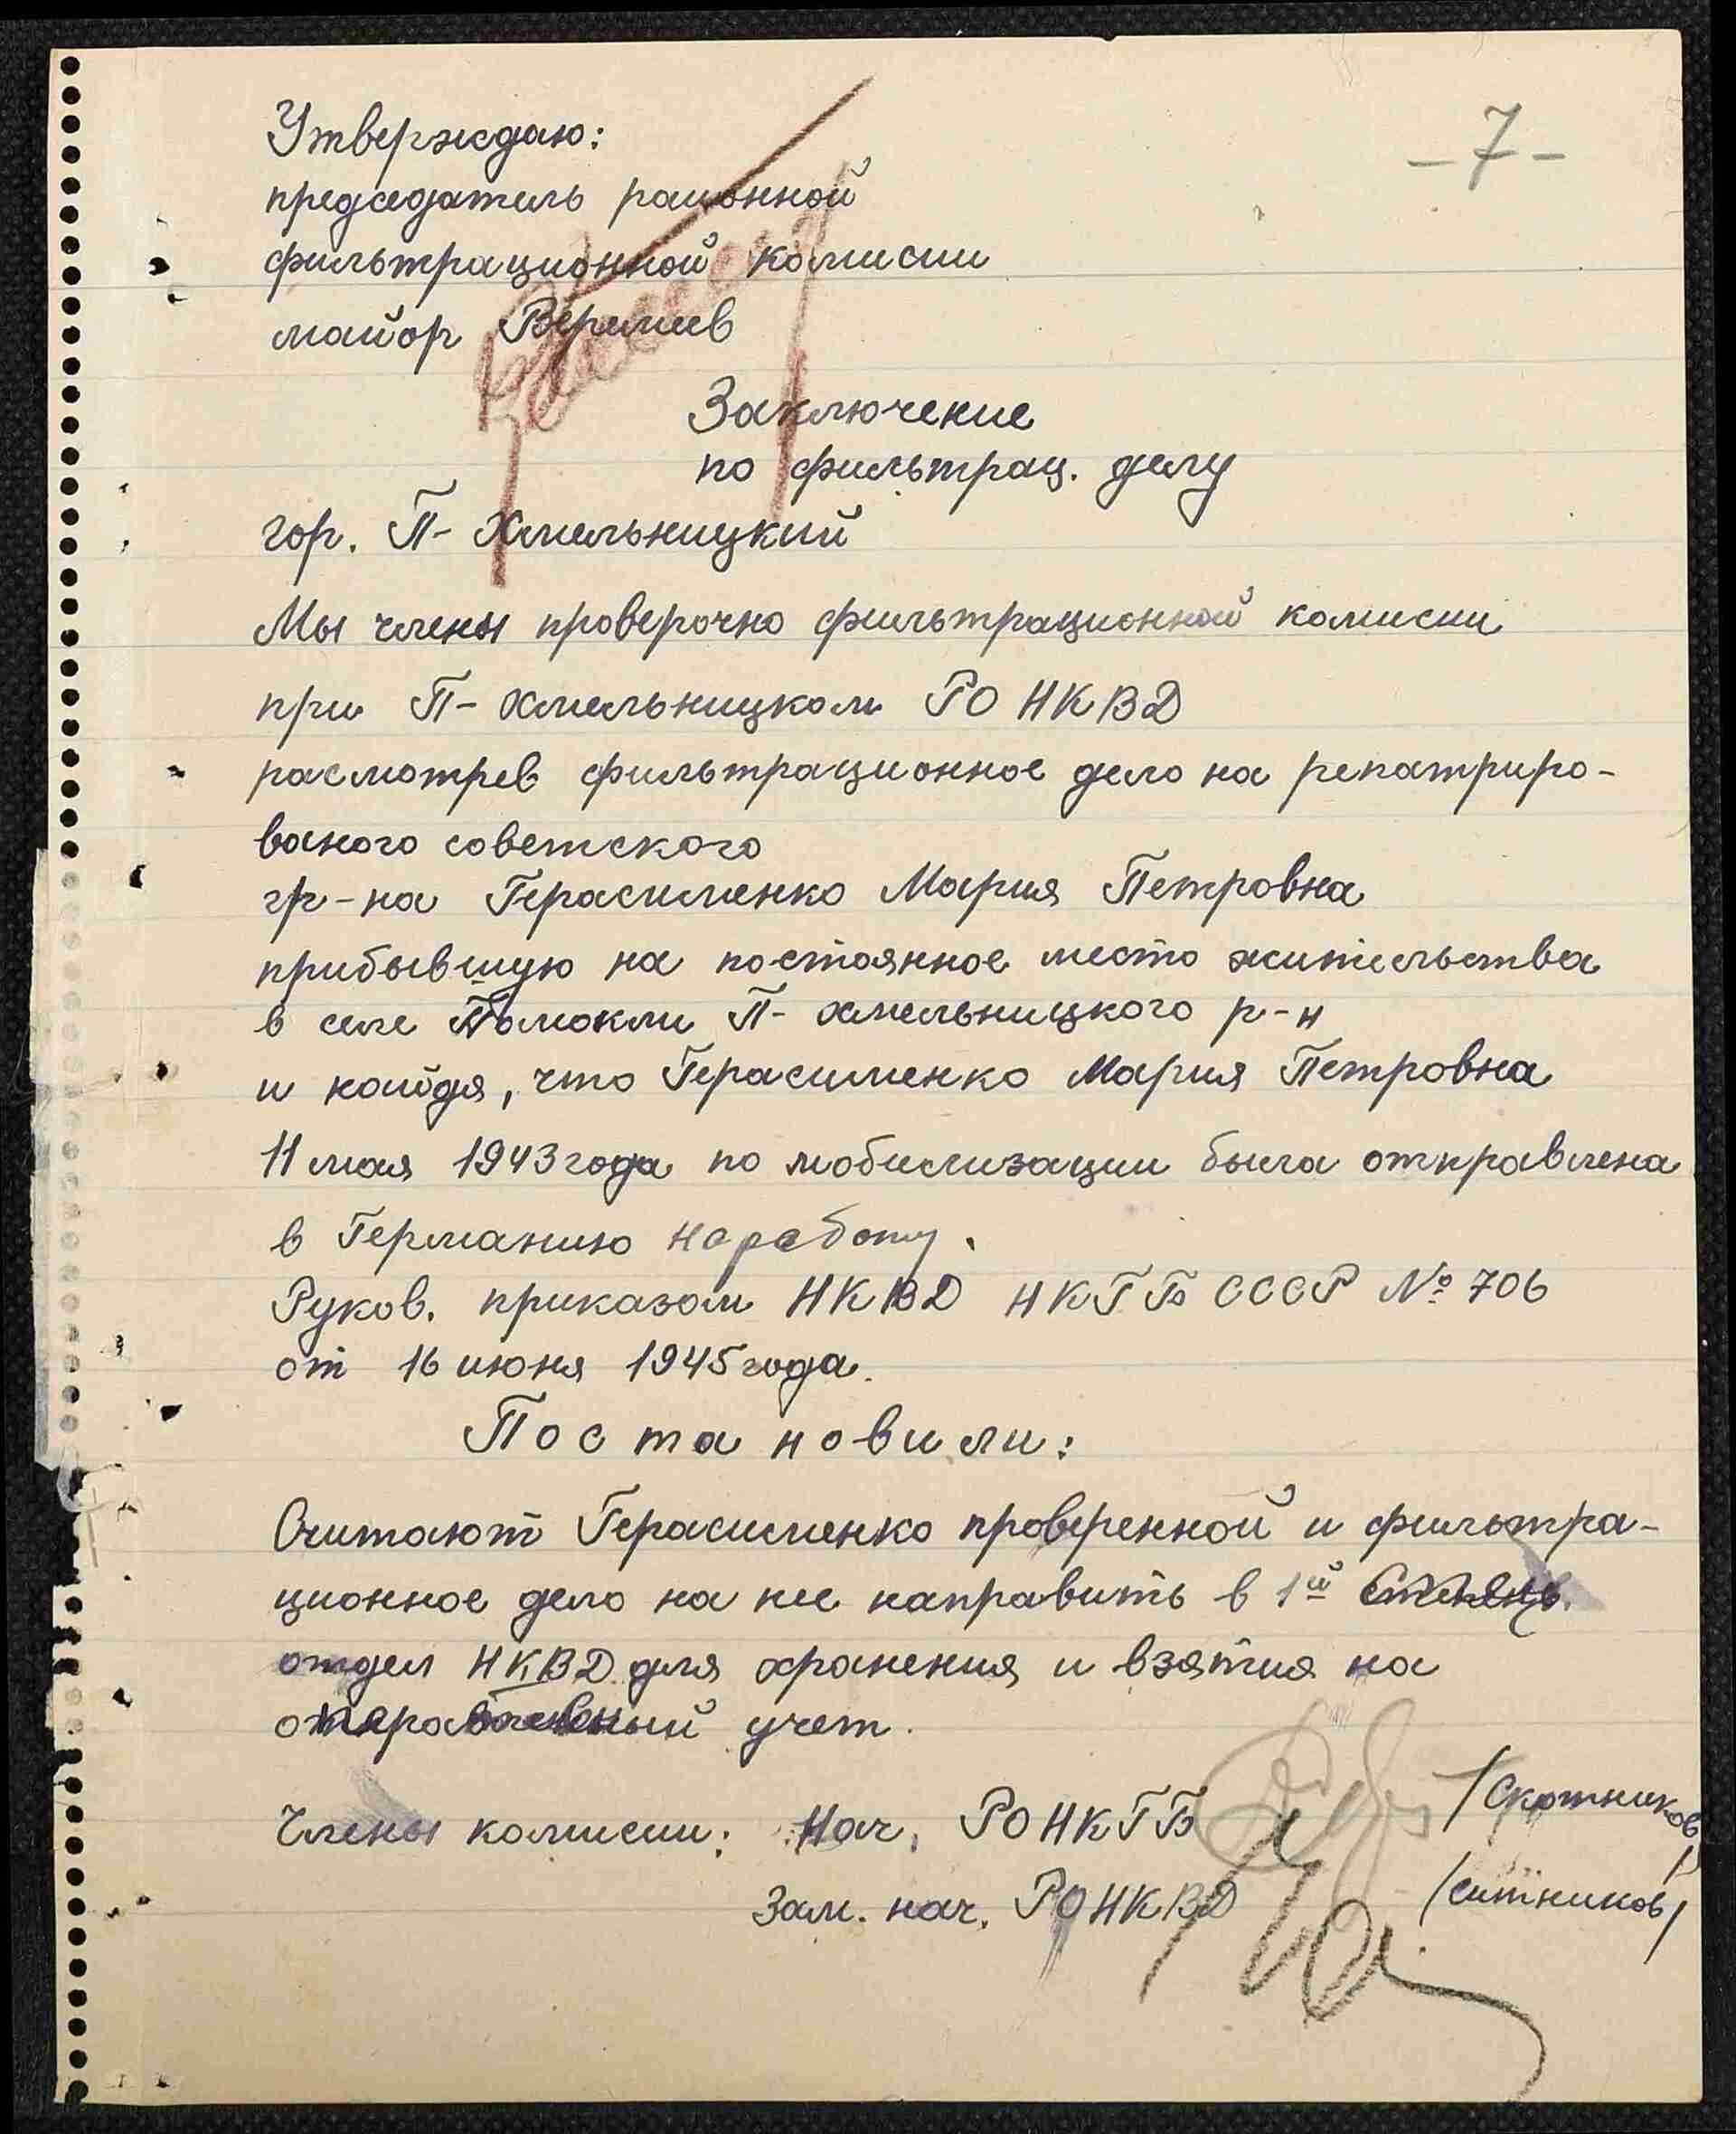 -7-
Утверждаю:
председатель районной
фильтрационной комисии
майор
Заключение
по фильтрац. делу
гор. П-Хмельницкий
Мы члены проверочно фильтрационной комисии
при П-Хмельницком РО НКВД
расмотрев фильтрационное дело на репатриро-
ваного советского
гр-на Герасименко Мария Петровна
прибывшую на постоянное место жительства
в селе Помокли П-Хмельницкого р-н
и найдя, что Герасименко Мария Петровна
11 мая 1943 года по мобилизации была отправлена
в Германию на работу.
Руков. приказом НКВД НКГБ СССР № 706
от 16 июня 1945 года.
Постановили:
Считают Герасименко проверенной и фильтра-
ционное дело на нее направить в 1й
отдел НКВД для хранения и взятия на
учет.
Члены комисии: Нач. РО НКГБ /Скотников/
Зам. нач. РО НКВД /Ситников/